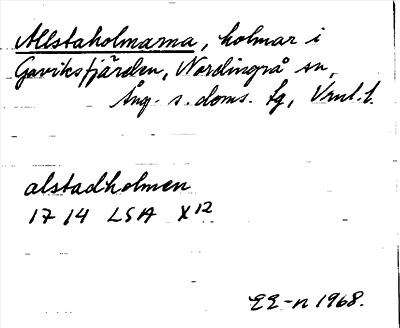 Allstaholmarna, holmar i
Gaviksfjärden, Nordingrå sn,
Ång. s. doms. tg, Vrnl. l.
alstadholmen
1714 LSA X12
EE-n 1968.